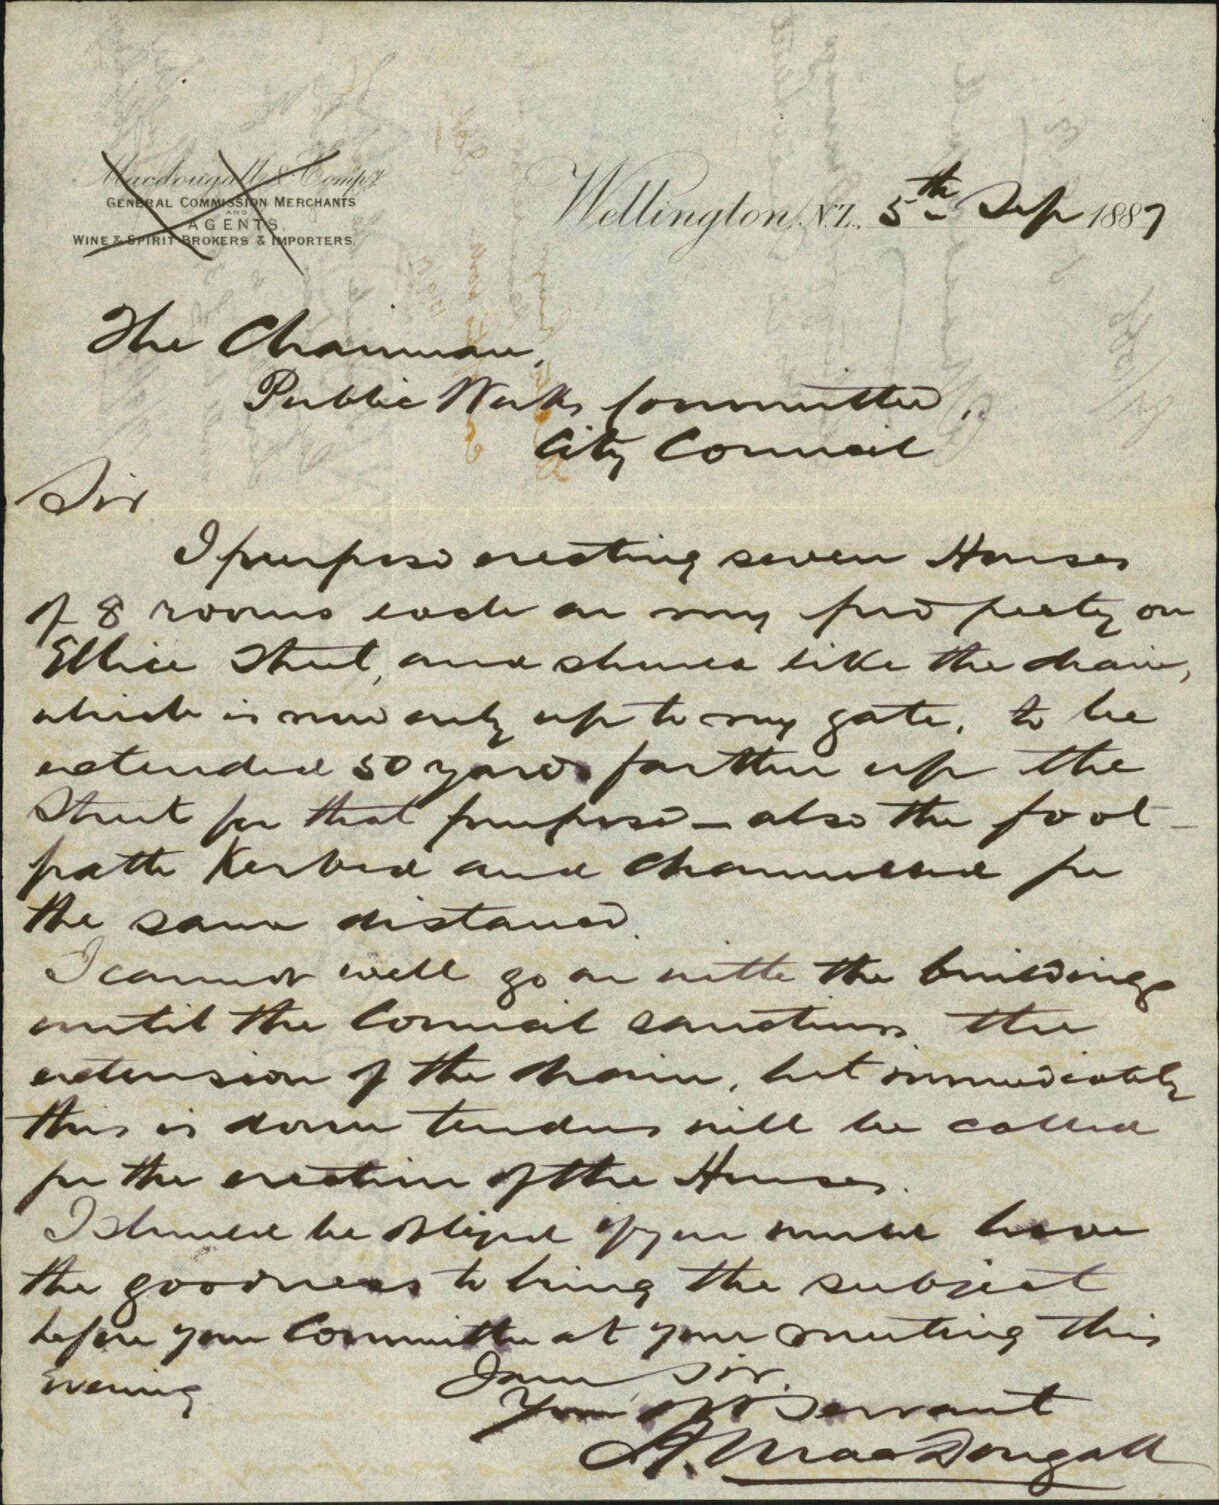 Macdougall & Compy
GENERAL COMMISSION MERCHANTS
AND
AGENTS,
WINE & SPIRIT BROKERS & IMPORTERS.
Wellington, N.Z., 5th Sep 1887
The Chairman,
Public Works Committee,
City Council
Sir
I purpose erecting seven Houses
of 8 rooms each on my property on
Ellice Street, and should like the drain,
which is now only up to my gate, to be
extended 50 yards farther up the
Street for that purpose – also the foot-
path Kerbed and Channelled for
the same distance.
I cannot well go on with the buildings
until the Council sanctions the
extension of the drain, but immediately
this is done tenders will be called
for the erection of the Houses.
I should be obliged if you would have
the goodness to bring the subject
before your Committee at your meeting this
Evening
I am Sir,
Your Obt Servant
A. MacDougall